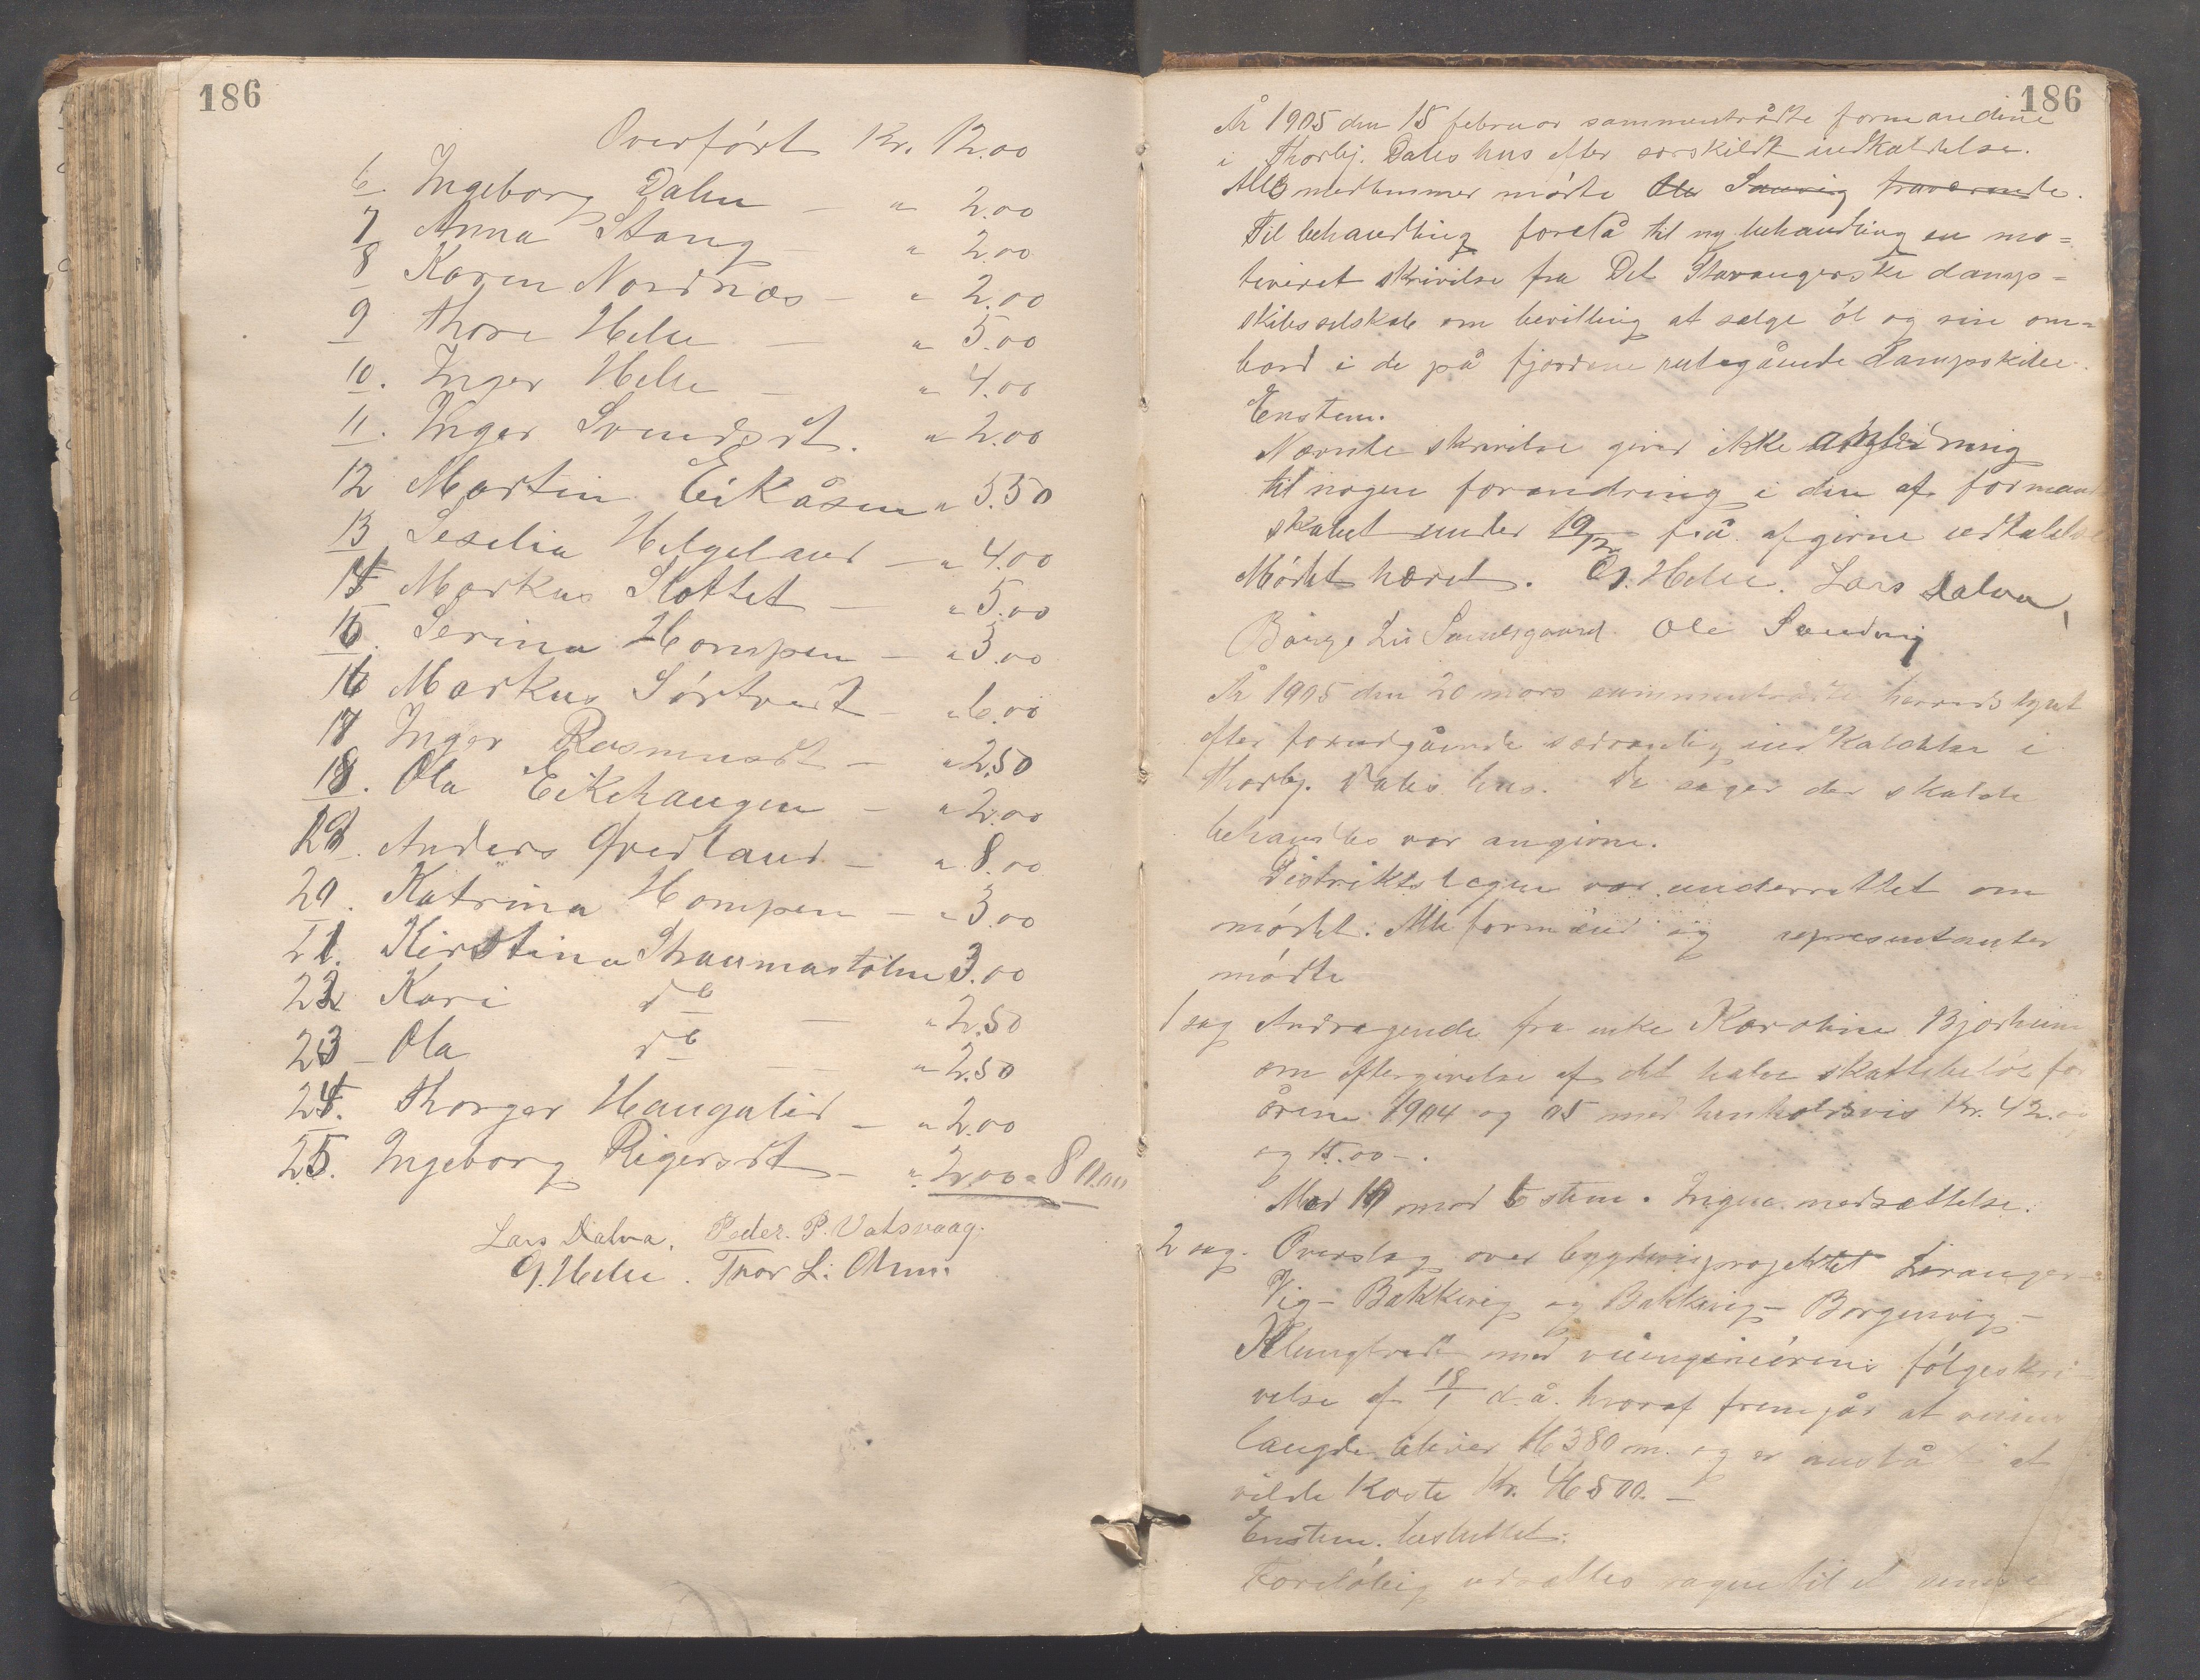 186
Overført Kr. 12.00
6. Ingeborg Dalen — " 2.00
7 Anna Stang " 2.00
8 Karen Nordnæs — " 2.00
9 Thore Helle — " 5.00
10. Inger Helle — " 4.00
11. Inger Svendsdt. " 2.00
12 Martin Eikåsen " 5.50
13 Seselia Helgeland — " 4.00
14 Markus Slottet — " 5.00
15. Serina Hompen — " 3.00
16 Markus Sørtveit — " 6.00
17 Inger Rasmusdt — " 2.50
18. Ola Eikehaugen — " 2.00
19. Anders Øvedland — " 8.00
20. Katrina Hompen — " 3.00
21. Kirstina Straumastølen 3.00
22 Kari do — " 2.50
23 - Ola do — — " 2.50
24. Thorger Haugalid — " 2.00
25. Ingeborg Rigersdt — " 2.00 =
Lars Dalva. Peder. P. Vatsvaag.
Helle. Thor L:
186
År 1905 den 15 februar sammentrådte formændene
i Thorbj. Dales hus efter særskildt indkaldelse.
Alle medlemmer mødte Ole Sandvig fraværende.
Til behandling forelå til ny behandling en mo=
tiveret skrivelse fra Det Stavangerske damp=
skibsselskab om bevilling at sælge øl og vin om=
bord i de på fjordene rutegående dampskibe.
Enstem.
Nævnte skrivelse giver ikke anledning
til nogen forandring i den af formand
skabet under 19/12 f.å. afgivne udtalelse
Mødet hævet. O. Helle. Lars Dalva,
Børge Li Sandsgaard. Ole Sandvig
År 1905 den 20 mars sammentrådte herredsstyret
efter forudgående sædvanlig indkaldelse i
Thorbj. Dales hus. De sager der skulde
behandles var angivne.
Distriktslægen var underrettet om
mødet. Alle formænd og representanter
mødte
1 sag Andragende fra enke Karoline Bjorheim
om eftergivelse af det halve skattebeløb for
årene 1904 og 05 med henholdsvis Kr. 42.00
og 15.00 -.
Med 10 mod 6 stem. Ingen nedsættelse.
2 sag. Overslag over bygdeveisprojektet Leranger-
Vig - Bakkevig og Bakkevig - Borgenvig -
Klungtvedt med veiingeniørens følgeskri-
velse af 18/1 d.å. hvoraf fremgår at veiens
længde bliver 16380 m. og er anslå at
vilde koste Kr. 46500. —
Enstem. besluttet:
Foreløbig udsættes sagen til